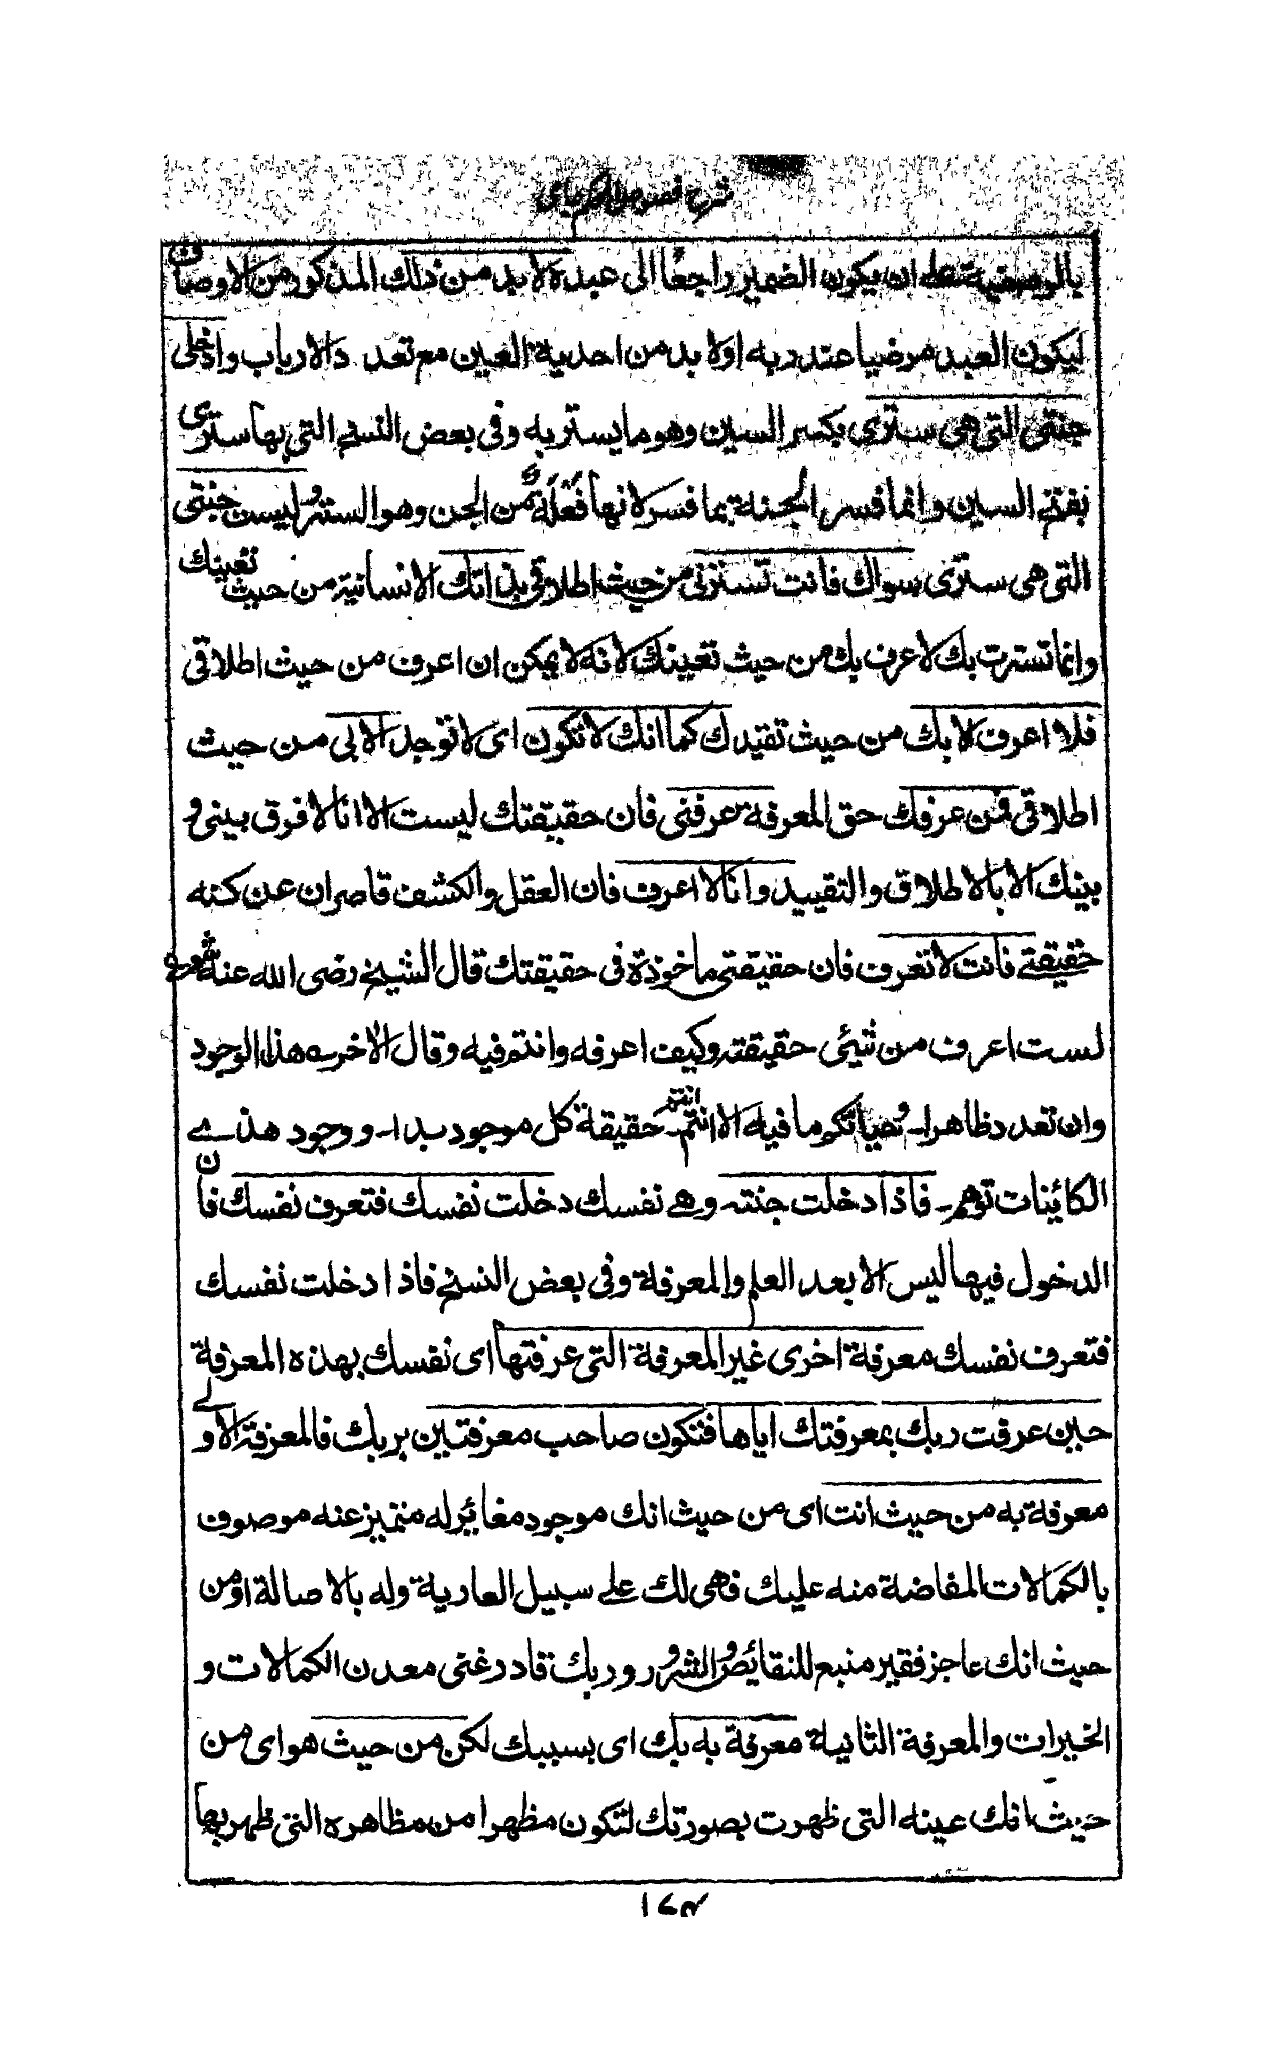 شرح فصوص الحكم جامی
بالوصفية على ان يكون الضمير راجعًا الى عبده لا بد من ذلك المذكور من الاوصاف
ليكون العبد مرضيا عند ربه اولا بد من احدية العين مع تعدد الارباب وادخلي
جنتي التي هي سترى بكسر السين وهو ما يستر به وفى بعض النسخ التي بها سترى
بفتح السين وانما فسر الجنة بما فسر لانها فَعْلَة من الجن وهو الستر وليست جنتي
التي هى سترى سواك فانت تسترني من حيث اطلاقى بذاتك الانسانية من حيث تعينك
وانما تسترت بك لاعرف بك من حيث تعينك لانه لا يمكن ان اعرف من حيث اطلاقى
فلا اعرف الا بك من حيث تقيدك كما انك لا تكون اى لا توجد الا بى من حيث
اطلاقى فمن عرفك حق المعرفة عرفنى فان حقيقتك ليست الا انا لا فرق بينى و
بينك الا بالاطلاق والتقييد وانا لا اعرف فان العقل والكشف قاصران عن كنه
حقيقتے فانت لا تعرف فان حقيقتى ماخوذة فى حقيقتك قال الشيخ رضى الله عنه شعرے
لست اعرف من شيئى حقيقته وكيف اعرفه وانتم فيه وقال الاخرے هذا الوجود
وان تعدد ظاهرا۔ وحياتكم ما فيه الا انتم۔ انتم حقيقة كل موجود بدا۔ ووجود هذے
الكائنات توهم۔ فاذا دخلت جنته وهے نفسك دخلت نفسك فتعرف نفسك فان
الدخول فيها ليس الا بعد العلم والمعرفة وفى بعض النسخ فاذا دخلت نفسك
فتعرف نفسك معرفة اخرى غير المعرفة التى عرفتها اى نفسك بهذه المعرفة
حين عرفت ربك بمعرفتك اياها فتكون صاحب معرفتين بربك فالمعرفة الاولے
معرفة به من حيث انت اى من حيث انك موجود مغائر له متميز عنه موصوف
بالكمالات المفاضة منه عليك فهى لك علے سبيل العارية وله بالاصالة او من
حيث انك عاجز فقير منبع للنقائص والشرور وربك قادر غنى معدن الكمالات و
الخيرات والمعرفة الثانية معرفة به بك اى بسببك لكن من حيث هو اى من
حيث انك عينه التى ظهرت بصورتك لتكون مظهرا من مظاهره التى ظهر بها
۱۷۳